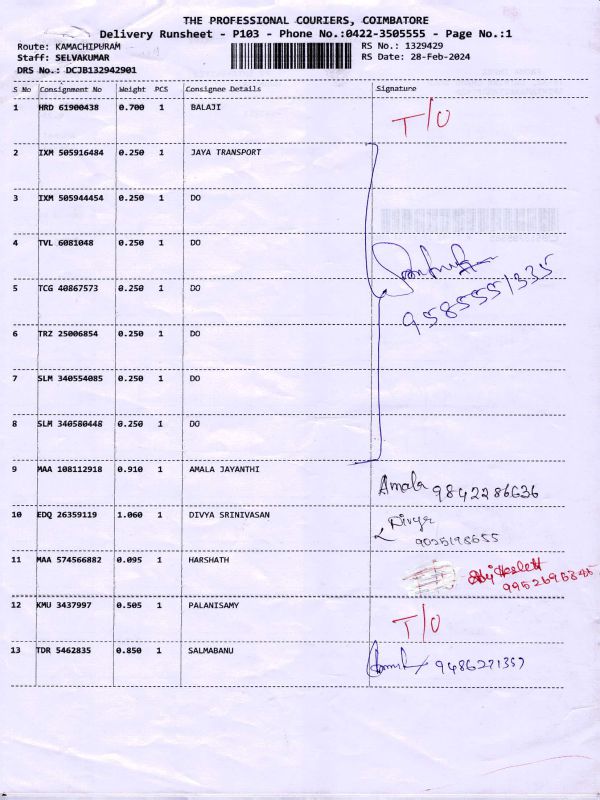 THE PROFESSIONAL COURIERS, COIMBATORE
Delivery Runsheet - P103 - Phone No.:0422-3505555 - Page No.:1
Route: KAMACHIPURAM RS No.: 1329429
Staff: SELVAKUMAR RS Date: 28-Feb-2024
DRS No.: DCJB132942901
S No Consignment No Weight PCS Consignee Details Signature
1 HRD 61900438 0.700 1 BALAJI T/O
2 IXM 505916484 0.250 1 JAYA TRANSPORT
3 IXM 505944454 0.250 1 DO
4 TVL 6081048 0.250 1 DO
5 TCG 40867573 0.250 1 DO
9585551335
6 TRZ 25006854 0.250 1 DO
7 SLM 340554085 0.250 1 DO
8 SLM 340580448 0.250 1 DO
9 MAA 108112918 0.910 1 AMALA JAYANTHI Amala 9842286636
10 EDQ 26359119 1.060 1 DIVYA SRINIVASAN Divya
11 MAA 574566882 0.095 1 HARSHATH
12 KMU 3437997 0.505 1 PALANISAMY T/O
13 TDR 5462835 0.850 1 SALMABANU 9486271357